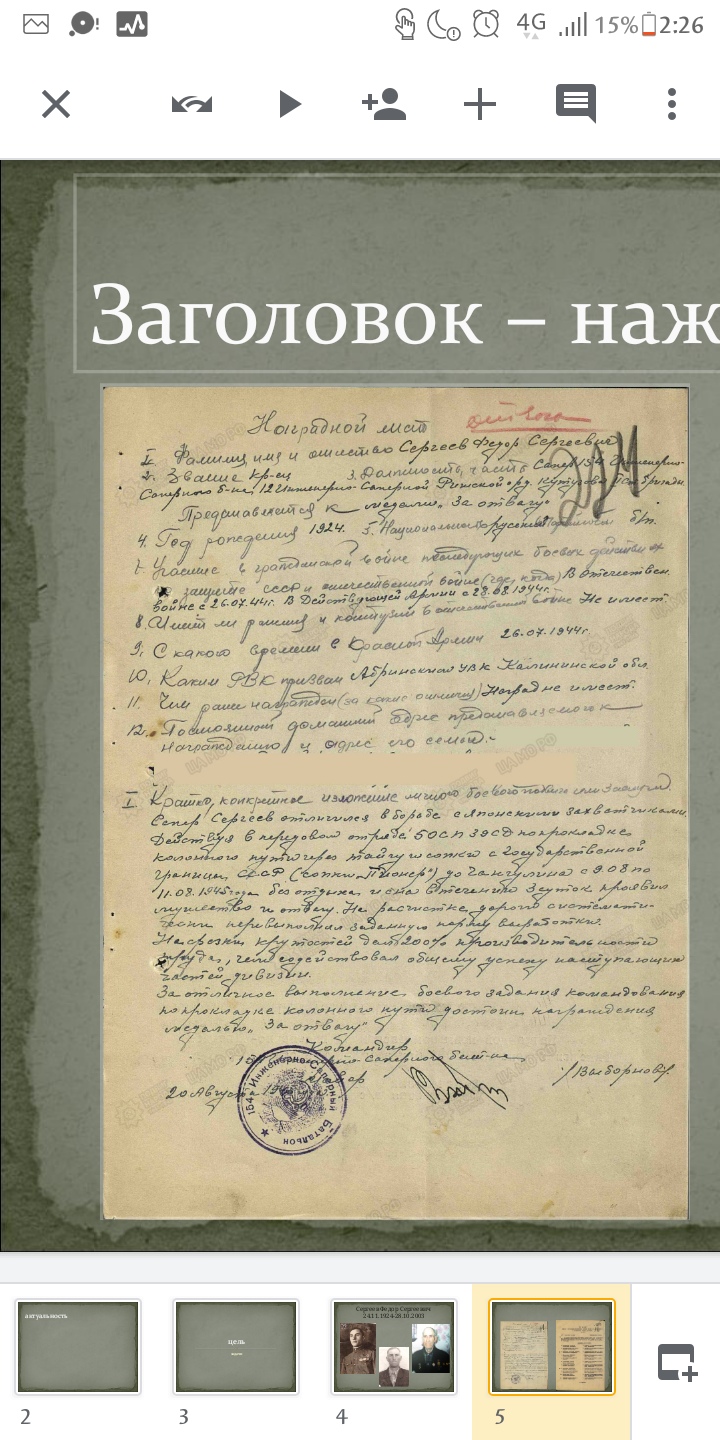 4G 15% 2:26
Заголовок – наж
Наградной лист
1. Фамилия, имя и отчество Сергеев Федор Сергеевич
2. Звание Кр-ец 3. Должность, часть Сапер 154 Инженерно-
Саперного б-на, 12 Инженерно-Саперной Рижской орд. Кутузова бригады
Представляется к медали „За отвагу"
4. Год рождения 1924. 5. Национальность русский б/п.
7. Участие в гражданской войне последующих боевых действиях
по защите СССР и отечественной войне (где, когда) В Отечествен.
войне с 26.07.44г. В Действующей Армии с 28.08.1944г.
8. Имеет ли ранения и контузии в отечественной войне Не имеет.
9. С какого времени в Красной Армии 26.07.1944г.
10. Каким РВК призван УВК Калининской обл.
11. Чем ранее награжден (за какие отличия) Наград не имеет.
12. Постоянный домашний адрес представляемого к
награждению и адрес его семьи:-
I. Краткое, конкретное изложение личного боевого подвига или заслуги.
Сапер Сергеев отличился в борьбе с Японскими захватчиками.
Действуя в передовом отряде 50СП 39СД по прокладке
колонного пути через тайгу и сопки с Государственной
границы СССР (сопки „Пионер") до с 9.08 по
11.08.1945 года без отдыха и сна в течении 3 суток проявил
мужество и отвагу. На расчистке дороги системати-
чески перевыполнял заданную норму выработки.
На срезки крутостей дал 200% производительности
труда, чем содействовал общему успеху наступающих
частей дивизии.
За отличное выполнение боевого задания командования
по прокладке колонного пути достоин награждения
медалью „За отвагу"
Командир
Инженерно-Саперного бат-на
/Выборнов/.
20 Август
154й Инженерно-Саперный Батальон
актуальность
цель
Сергеев Федор Сергеевич
2 3 4 5